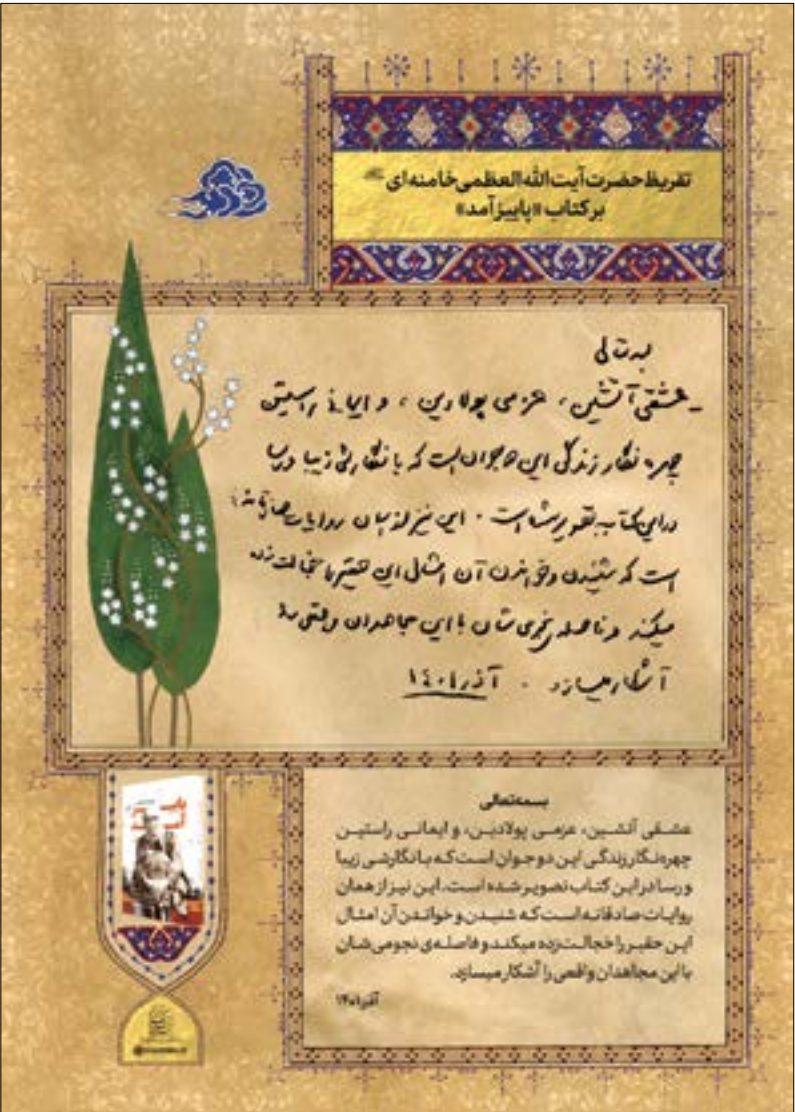 تقریظ حضرت آیت‌الله العظمی خامنه‌ای
بر کتاب «پاییز آمد»
بسمه‌تعالی
عشقی آتشین، عزمی پولادین، و ایمانی راستین
چهره نگار زندگی این دو جوان است که با نگارش زیبا و رسا
در این کتاب تصویر شده است. این نیز از همان روایات صادقانه
است که شنیدن و خواندن آن امثال این حقیر را خجالت‌زده
میکند و فاصله‌ی نجومی‌شان با این مجاهدان واقعی را
آشکار میسازد. آذر ۱۴۰۱
بسمه‌تعالی
عشقی آتشین، عزمی پولادین، و ایمانی راستین
چهره‌نگار زندگی این دو جوان است که با نگارشی زیبا
و رسا در این کتاب تصویر شده است. این نیز از همان
روایات صادقانه است که شنیدن و خواندن آن امثال
این حقیر را خجالت‌زده میکند و فاصله‌ی نجومی‌شان
با این مجاهدان واقعی را آشکار میسازد.
آذر ۱۴۰۱